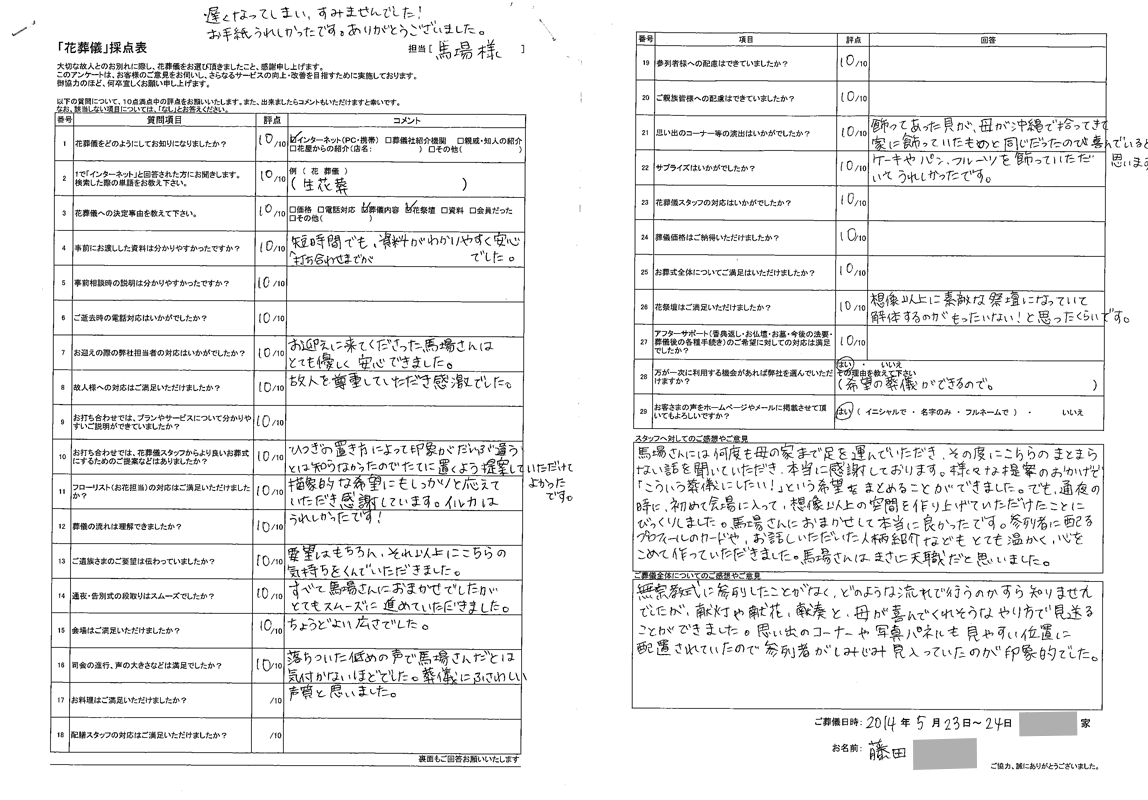 遅くなってしまい、すみませんでした！
お手紙うれしかったです。ありがとうございました。
「花葬儀」採点表
担当［ 馬場様 ］
大切な故人とのお別れに際し、花葬儀をお選び頂きましたこと、感謝申し上げます。
このアンケートは、お客様のご意見をお伺いし、さらなるサービスの向上・改善を目指すために実施しております。
御協力のほど、何卒宜しくお願い申し上げます。
以下の質問について、10点満点中の評点をお願いいたします。また、出来ましたらコメントもいただけますと幸いです。
なお、該当しない項目については、「なし」とお答えください。
番号 質問項目 評点 コメント
1 花葬儀をどのようにしてお知りになりましたか？ 10/10 ☑インターネット(PC・携帯) □葬儀社紹介機関 □親戚・知人の紹介
□花屋からの紹介(店名： ) □その他( )
2 1で「インターネット」と回答された方にお聞きします。
検索した際の単語をお教え下さい。 10/10 例（ 花 葬儀 ）
( 生花葬 )
3 花葬儀への決定事由を教えて下さい。 10/10 □価格 □電話対応 ☑葬儀内容 ☑花祭壇 □資料 □会員だった
□その他( )
4 事前にお渡しした資料は分かりやすかったですか？ 10/10 短時間でも、資料がわかりやすく安心
打ち合わせまでが でした。
5 事前相談時の説明は分かりやすかったですか？ 10/10
6 ご逝去時の電話対応はいかがでしたか？ 10/10
7 お迎えの際の弊社担当者の対応はいかがでしたか？ 10/10 お迎えに来てくださった馬場さんは
とても優しく安心できました。
8 故人様への対応はご満足いただけましたか？ 10/10 故人を尊重していただき感激でした。
9 お打ち合わせでは、プランやサービスについて分かりや
すいご説明ができていましたか？ 10/10
10 お打ち合わせでは、花葬儀スタッフからより良いお葬式
にするためのご提案などはありましたか？ 10/10 ひつぎの置き方によって印象がだいぶ違う
とは知らなかったのでたてに置くよう提案していただけて
よかったです。
11 フローリスト(お花担当)の対応はご満足いただけました
か？ 10/10 抽象的な希望にもしっかりと応えて
いただき感謝しています。イルカは
うれしかったです！
12 葬儀の流れは理解できましたか？ 10/10
13 ご遺族さまのご要望は伝わっていましたか？ 10/10 要望はもちろん、それ以上にこちらの
気持ちをくんでいただきました。
14 通夜・告別式の段取りはスムーズでしたか？ 10/10 すべて馬場さんにおまかせでしたが
とてもスムーズに進めていただきました。
15 会場はご満足いただけましたか？ 10/10 ちょうどよい広さでした。
16 司会の進行、声の大きさなどは満足でしたか？ 10/10 落ちついた低めの声で馬場さんだとは
気付かないほどでした。葬儀にふさわしい
声質と思いました。
17 お料理はご満足いただけましたか？ /10
18 配膳スタッフの対応はご満足いただけましたか？ /10
裏面もご回答お願いいたします
番号 項目 評点 回答
19 参列者様への配慮はできていましたか？ 10/10
20 ご親族皆様への配慮はできていましたか？ 10/10
21 思い出のコーナー等の演出はいかがでしたか？ 10/10 飾ってあった貝が、母が沖縄で拾ってきて
家に飾っていたものと同じだったので喜んでいると
思います
22 サプライズはいかがでしたか？ 10/10 ケーキやパン、フルーツを飾っていただ
いてうれしかったです。
23 花葬儀スタッフの対応はいかがでしたか？ 10/10
24 葬儀価格はご納得いただけましたか？ 10/10
25 お葬式全体についてご満足はいただけましたか？ 10/10
26 花祭壇はご満足いただけましたか？ 10/10 想像以上に素敵な祭壇になっていて
解体するのがもったいない！と思ったくらいです。
27 アフターサポート(香典返し・お仏壇・お墓・今後の法要・
葬儀後の各種手続き)のご希望に対しての対応は満足
でしたか？ 10/10
28 万が一次に利用する機会があれば弊社を選んでいただ
けますか？ はい ・ いいえ
その理由を教えて下さい
(希望の葬儀ができるので。 )
29 お客さまの声をホームページやメールに掲載させて頂
いてもよろしいですか？ はい ( イニシャルで ・ 名字のみ ・ フルネームで ) ・ いいえ
スタッフへ対してのご感想やご意見
馬場さんには何度も母の家まで足を運んでいただき、その度にこちらのまとまら
ない話を聞いていただき、本当に感謝しております。様々な提案のおかげで
「こういう葬儀にしたい！」という希望をまとめることができました。でも、通夜の
時に、初めて会場に入って、想像以上の空間を作り上げていただけたことに
びっくりしました。馬場さんにおまかせして本当に良かったです。参列者に配る
プロフィールのカードや、お話しいただいた人柄紹介などもとても温かく、心を
こめて作っていただきました。馬場さんはまさに天職だと思いました。
ご葬儀全体についてのご感想やご意見
無宗教式に参列したことがなく、どのような流れで行うのかすら知りませんで
したが、献灯や献花、献奏と、母が喜んでくれそうなやり方で見送る
ことができました。思い出のコーナーや写真パネルも見やすい位置に
配置されていたので参列者がしみじみ見入っていたのが印象的でした。
ご葬儀日時： 2014 年 5 月 23日～24日 家
お名前： 藤田
ご協力、誠にありがとうございました。